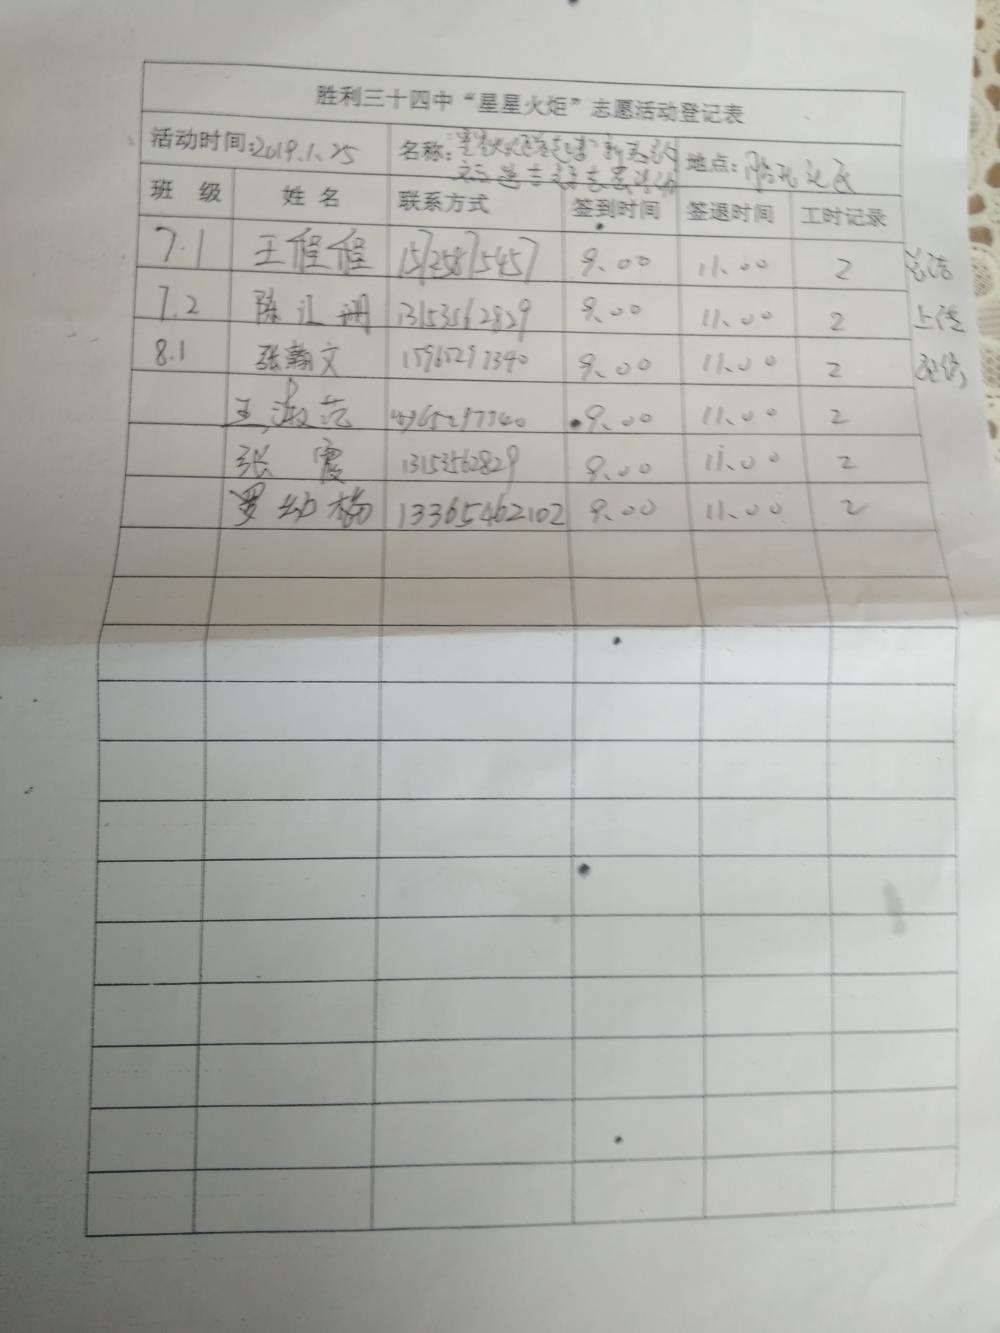 胜利三十四中“星星火炬”志愿活动登记表
活动时间:2019.1.25 名称: 地点:
班 级 姓 名 联系方式 签到时间 签退时间 工时记录
7.1 王程程 15725875457 9.00 11.00 2 总结
7.2 陈 13153562829 9.00 11.00 2 上传
8.1 张翰文 15965297340 9.00 11.00 2
王淑范 9.00 11.00 2
张 霞 13153562829 9.00 11.00 2
罗幼梅 13365462102 9.00 11.00 2